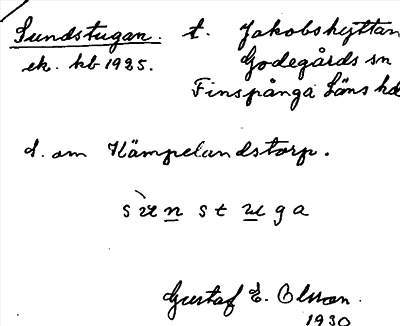 Sundstugan. t. Jakobshyttan
ek. kb 1925. Godegårds sn
Finspånga Läns hd
d. om Kämpelandstorp.
sùn st u g a
Gustaf E. Olsson.
1930